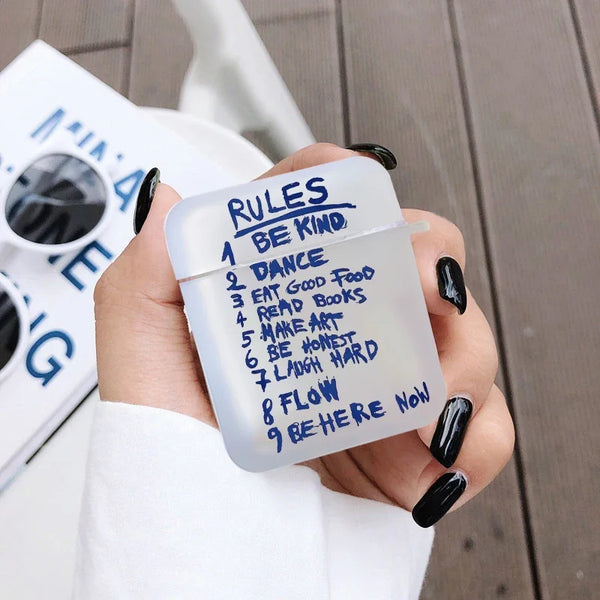 RULES
1 BE KIND
2 DANCE
3 EAT GOOD FOOD
4 READ BOOKS
5 MAKE ART
6 BE HONEST
7 LAUGH HARD
8 FLOW
9 BE HERE NOW